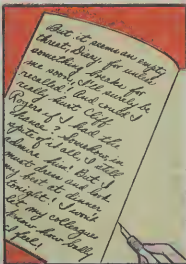 But it seems an empty
threat, Diary, for unless
something breaks for
me soon, I'll surely be
recalled! And could I
really hurt Cliff
Roy if I had the
chance? Somehow, in
spite of it all, I still
desire him! But I
must dress and look
my best at dinner
tonight! I won't
let my colleagues
know how badly
I feel!